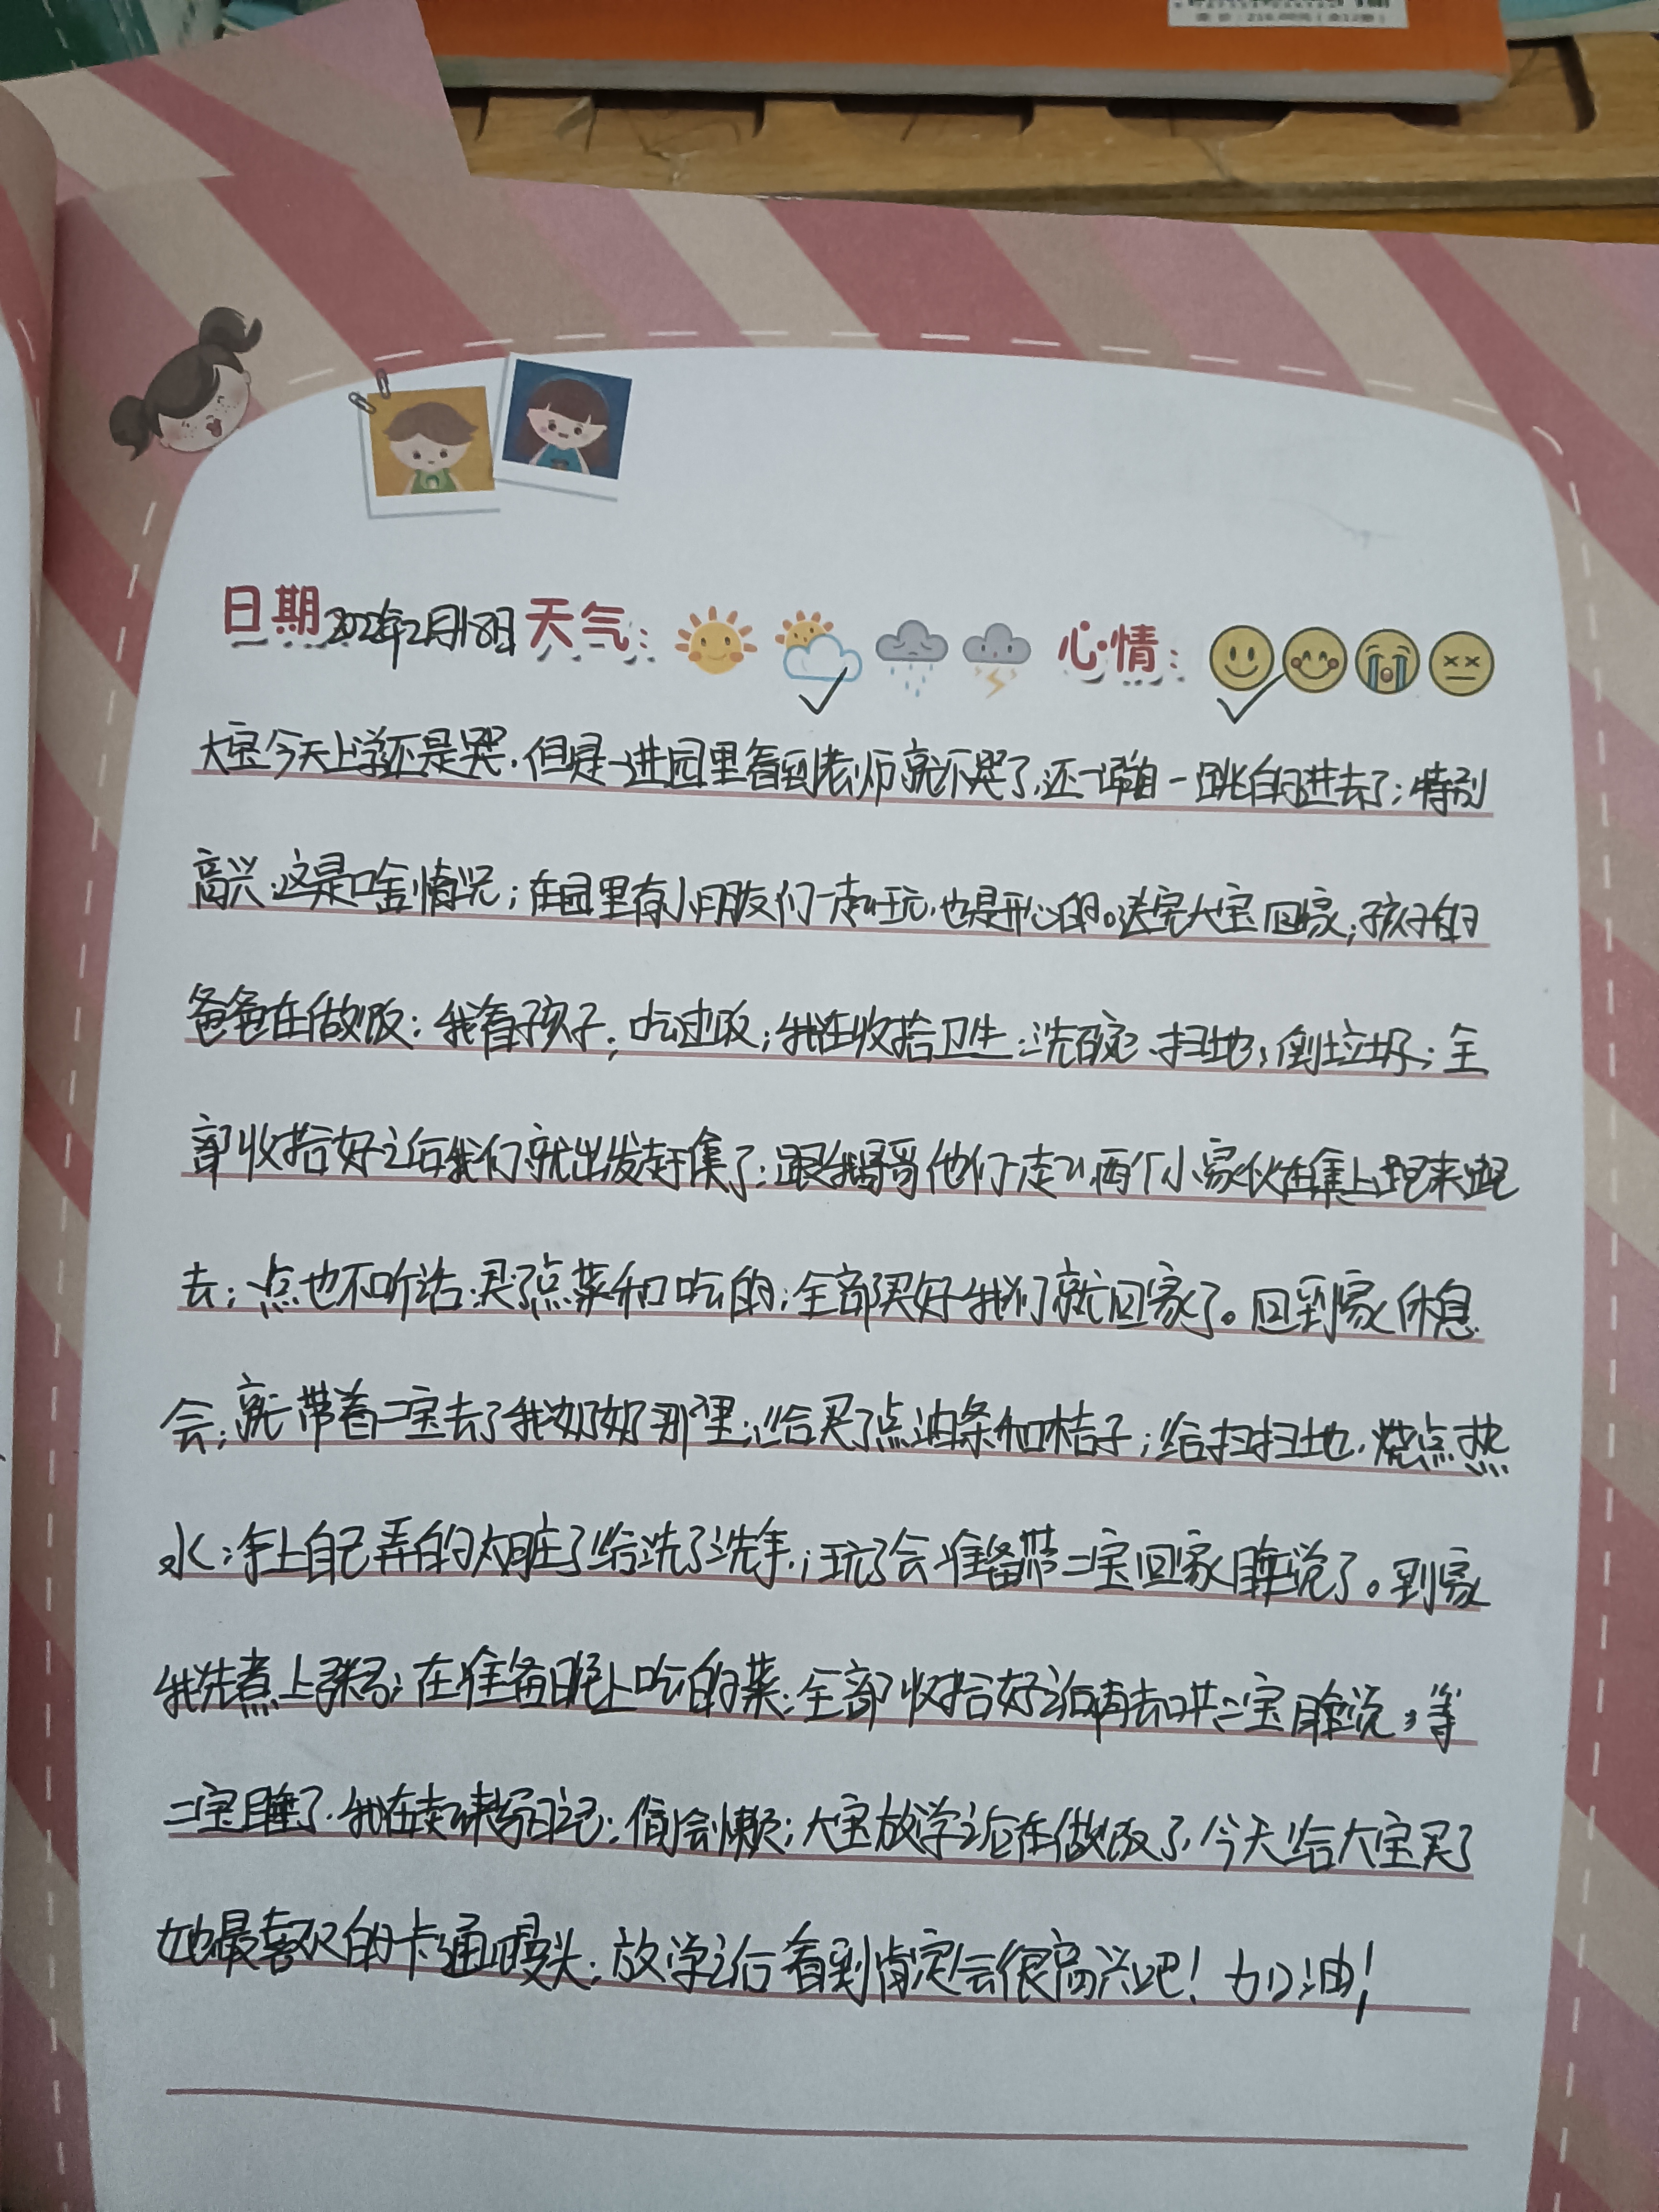 日期2022年2月18日 天气： 心情：
大宝今天上学还是哭，但是一进园里看到老师就不哭了，还一蹦一跳的进去了；特别
高兴，这是啥情况；在园里有小朋友们一起玩，也是开心的。送完大宝回家，孩子的
爸爸在做饭；我看孩子；吃过饭；我在收拾卫生；洗碗、扫地；倒垃圾；全
部收拾好之后我们就出发赶集了；跟我哥哥他们一起；两个小家伙在集上跑来跑
去；一点也不听话；买了点菜和吃的；全部买好我们就回家了。回到家休息
会；就带着二宝去了我奶奶那里；给买了点油条和桔子；给扫扫地，烧点热
水；手上自己弄的太脏了给洗了洗手；玩了会准备带二宝回家睡觉了。到家
我先煮上粥；在准备晚上吃的菜；全部收拾好之后再去哄二宝睡觉，等
二宝睡了，我在写日记；偷会懒；大宝放学之后在做饭了，今天给大宝买了
她最喜欢的卡通馒头；放学之后看到肯定会很高兴吧！加油！